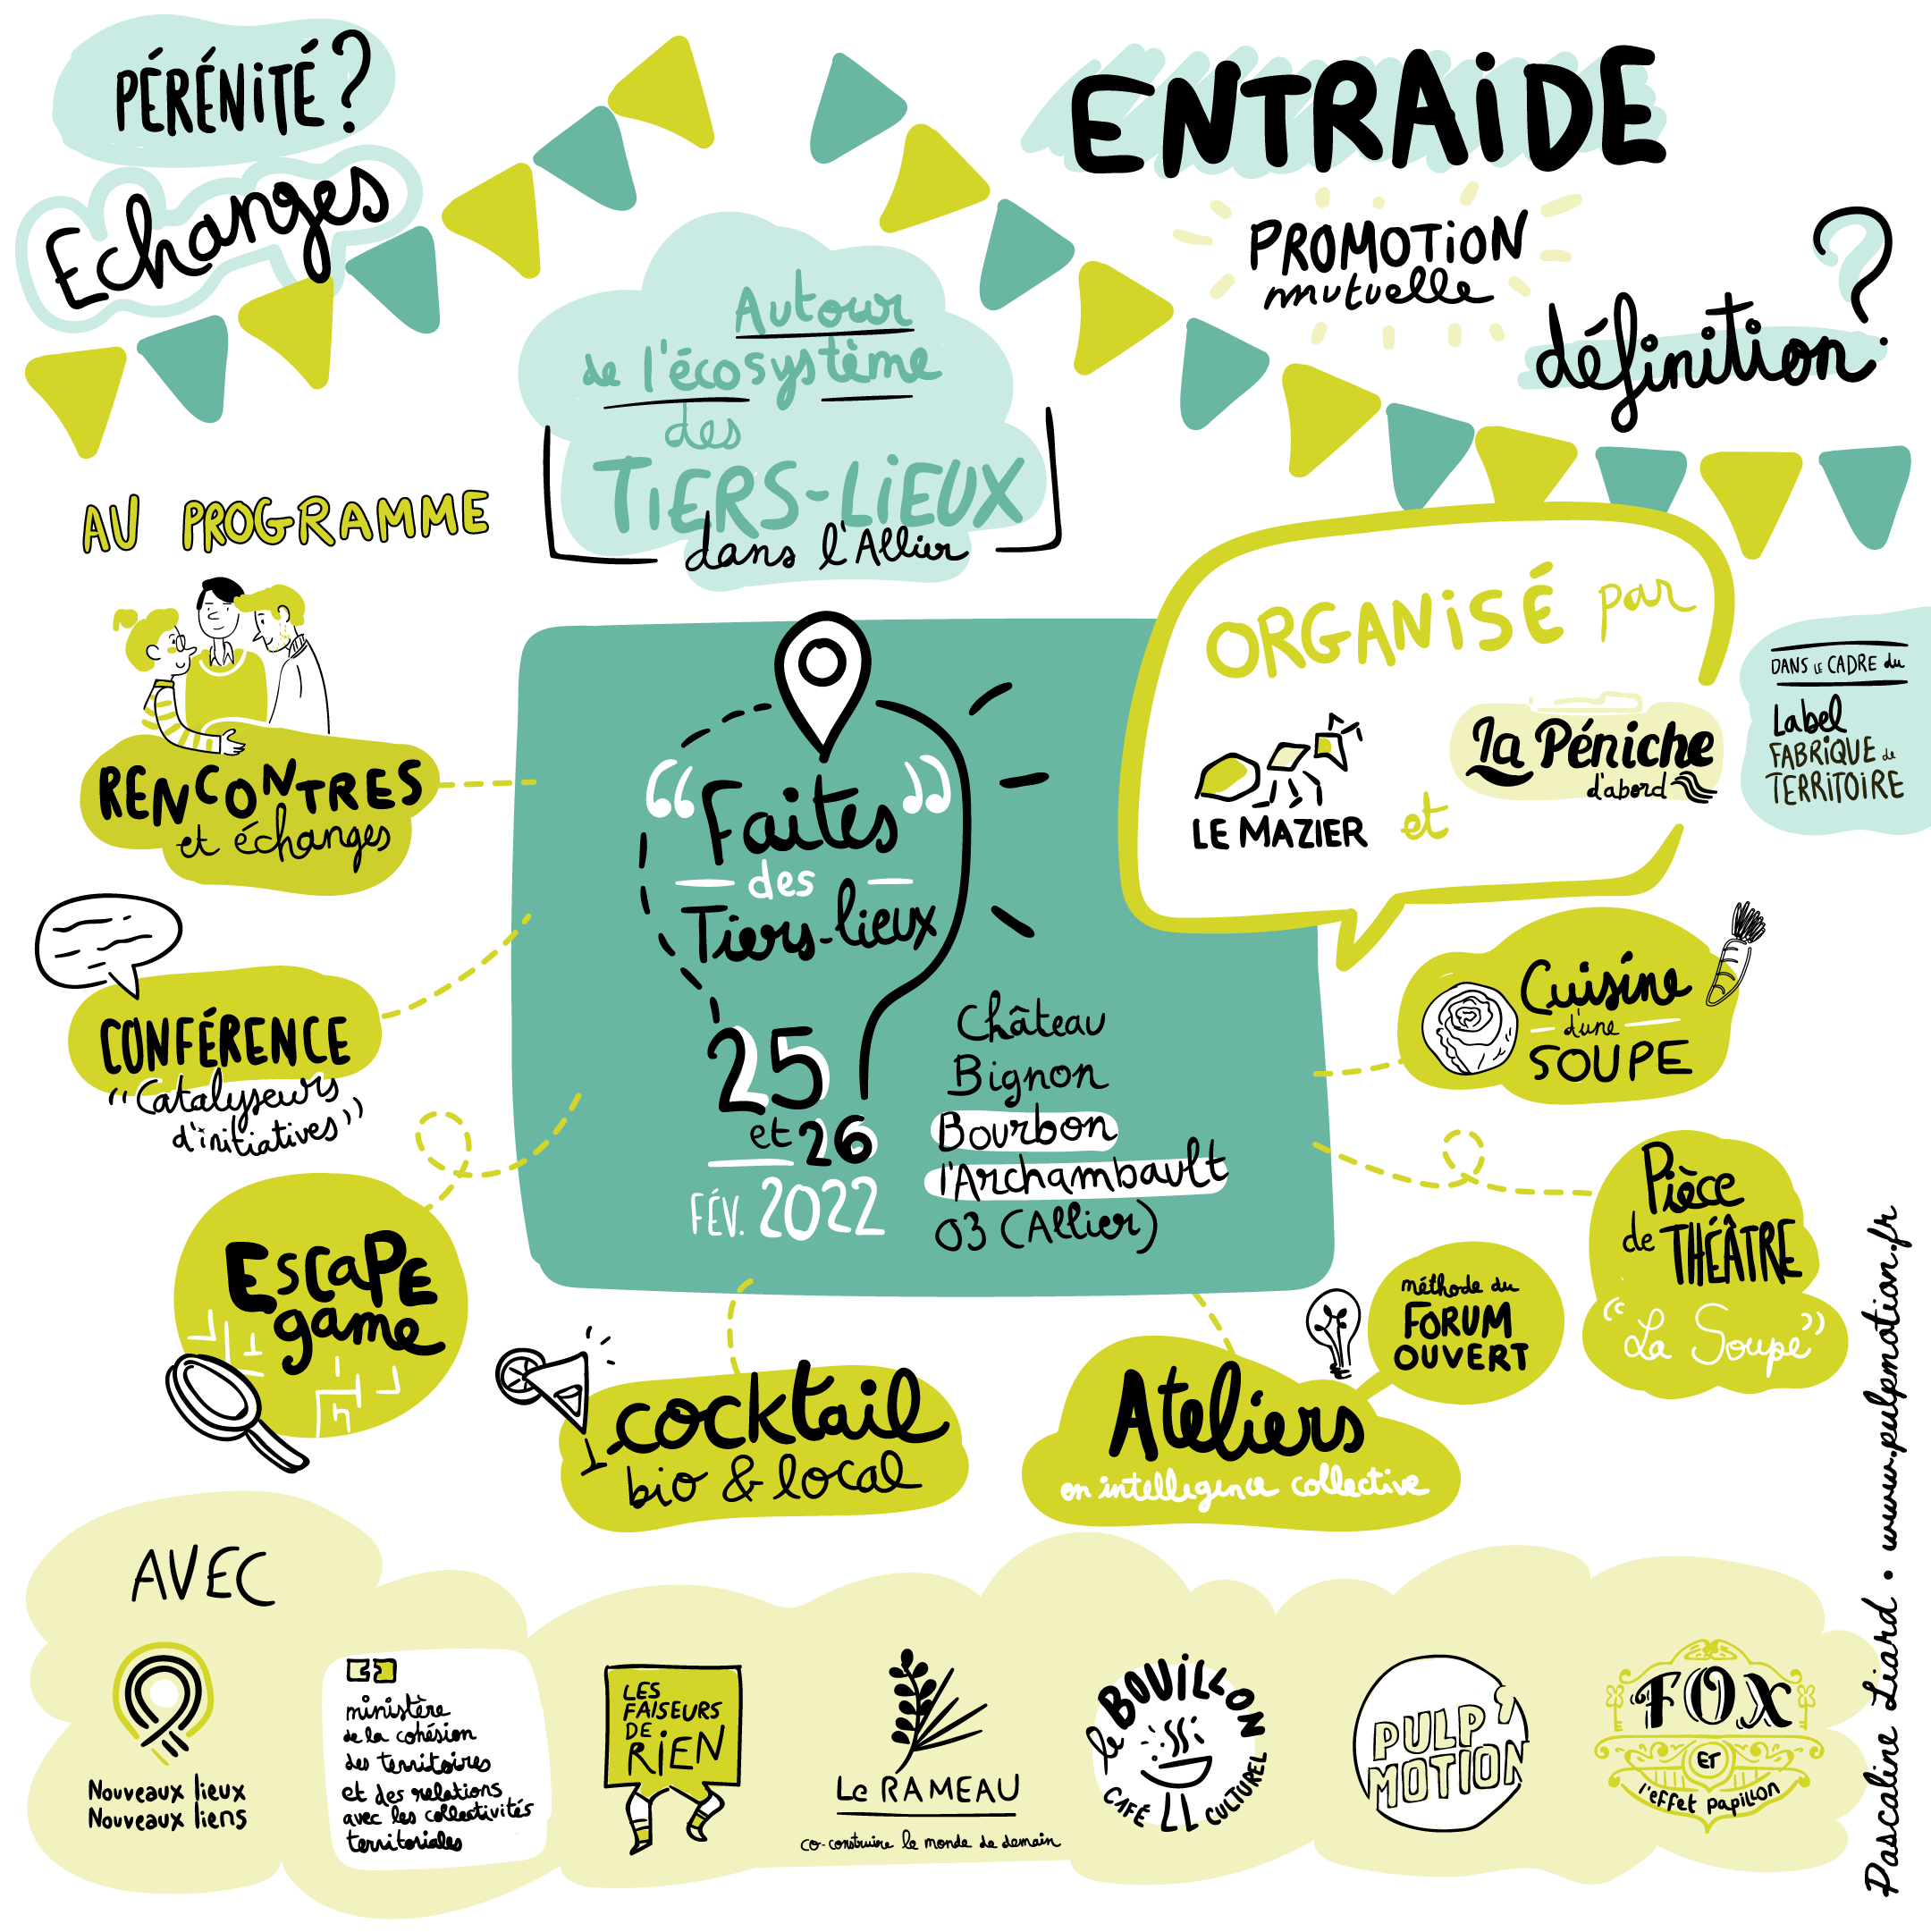 PÉRÉNITÉ ?
Echanges
ENTRAIDE
PROMOTION
mutuelle
définition ?
Autour
de l'écosystème
des
TIERS-LIEUX
dans l'Allier
AU PROGRAMME
RENCONTRES
et échanges
CONFÉRENCE
"Catalyseurs
d'initiatives"
ESCAPE
game
cocktail
bio & local
Ateliers
en intelligence collective
méthode du
FORUM
OUVERT
Pièce
de THÉÂTRE
"La Soupe"
Cuisine
d'une
SOUPE
"Faites"
des
Tiers-lieux
25
et 26
FÉV. 2022
Château
Bignon
Bourbon
l'Archambault
03 (Allier)
ORGANISÉ par
LE MAZIER
et
La Péniche
d'abord
DANS LE CADRE du
Label
FABRIQUE de
TERRITOIRE
AVEC
Nouveaux lieux
Nouveaux liens
ministère
de la cohésion
des territoires
et des relations
avec les collectivités
territoriales
LES
FAISEURS
DE
RIEN
Le RAMEAU
co-construire le monde de demain
le BOUILLON
CAFÉ CULTUREL
PULP'
MOTION
FOX
ET
l'effet papillon
Pascaline Liard • www.pulpmotion.fr